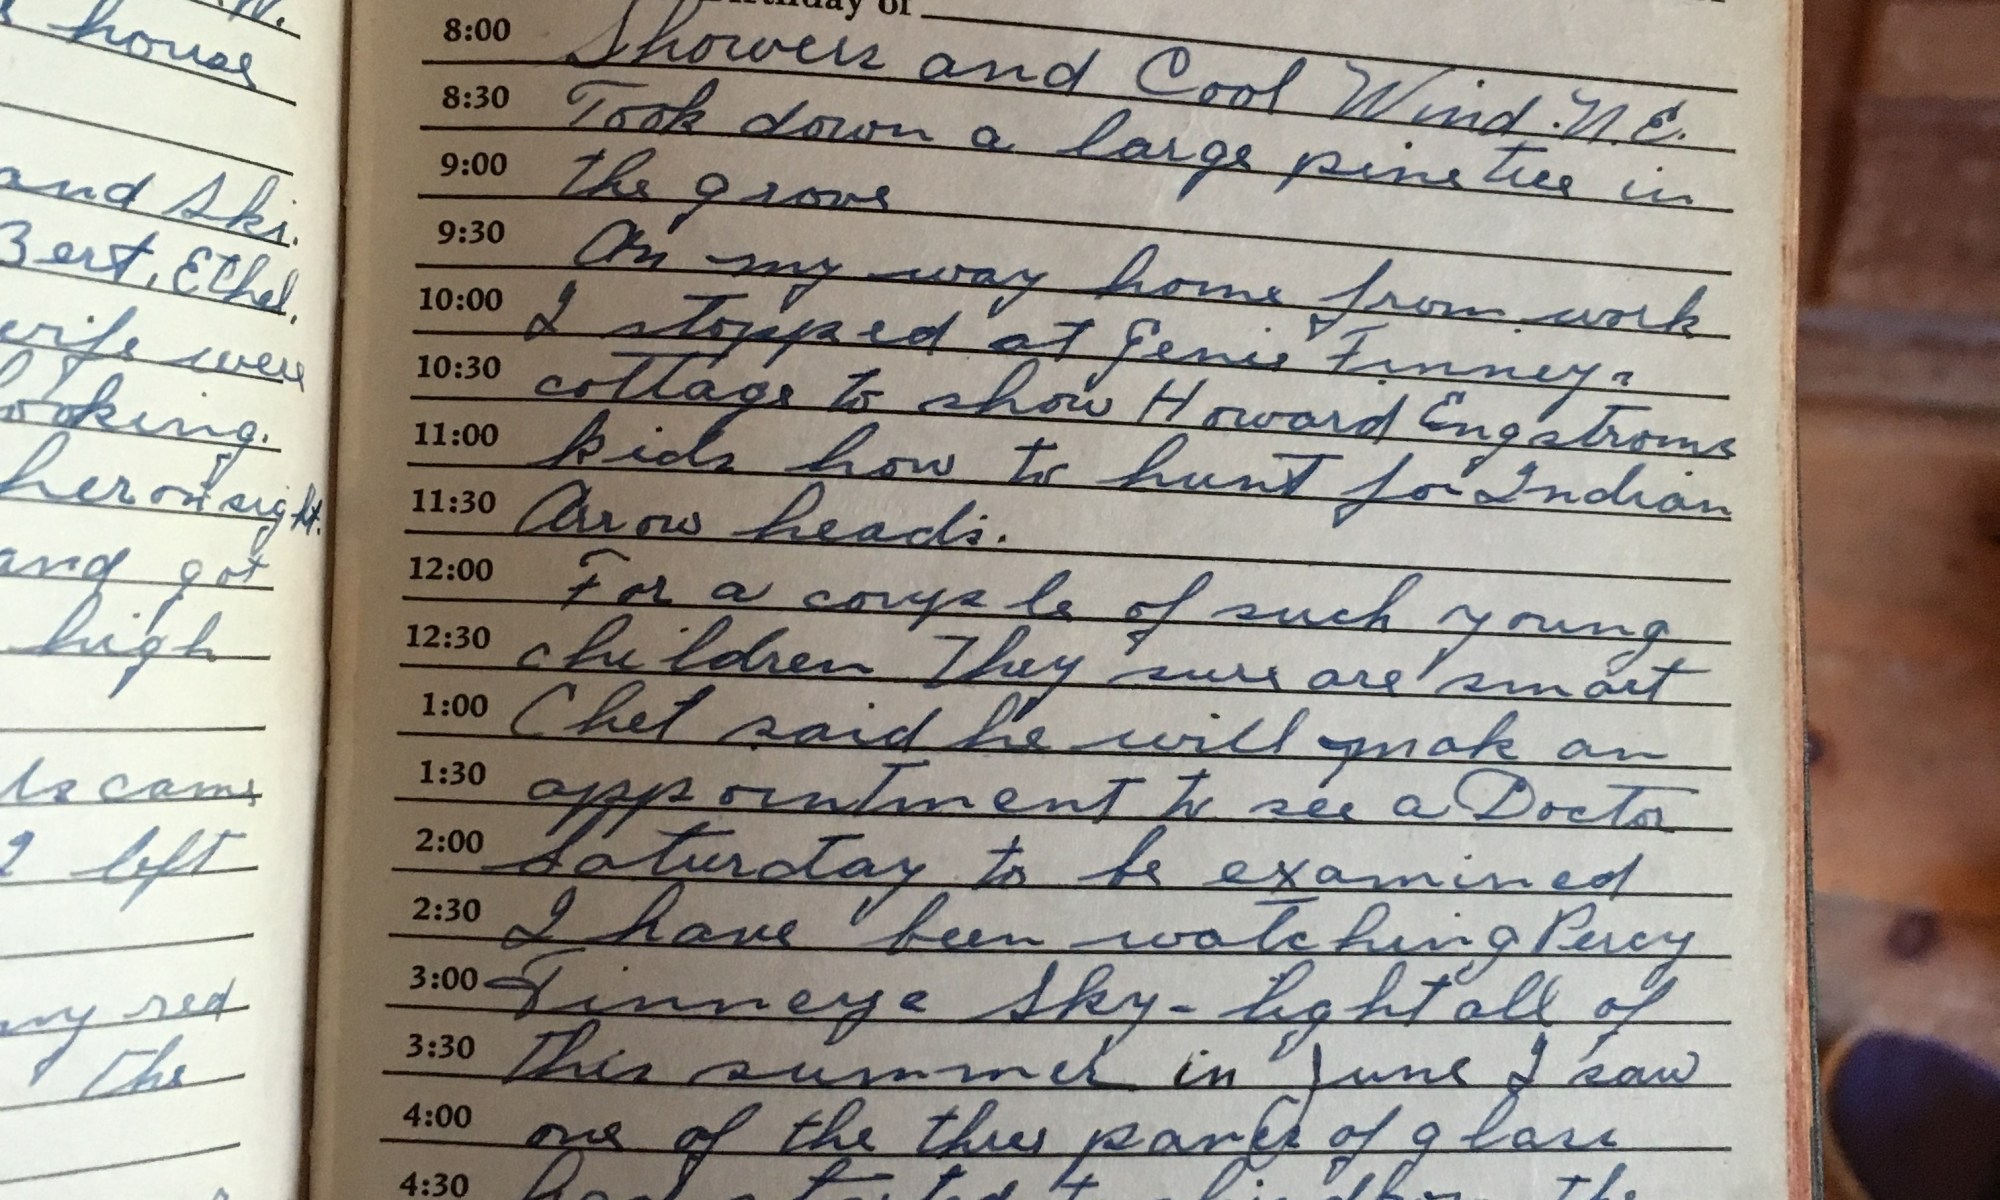 house
and Ski.
Bert, Ethel,
wife were
looking.
her on sight.
and got
high
came
I left
my red
the
8:00 Showers and Cool Wind. N.E.
8:30 Took down a large pine tree in
9:00 the grove
9:30 On my way home from work
10:00 I stopped at Genie Finneys
10:30 cottage to show Howard Engstroms
11:00 kids how to hunt for Indian
11:30 Arrow heads.
12:00 For a couple of such young
12:30 children They sure are smart
1:00 Chet said he will mak an
1:30 appointment to see a Doctor
2:00 Saturday to be examined
2:30 I have been watching Percy
3:00 Finneys Sky-light all of
3:30 this summer in June I saw
4:00 one of the three panes of glass
4:30 had started to slide from the